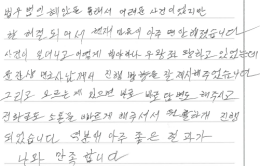 법무법인 혜안을 통해서 어려운 사건이었지만
잘 해결 되어서 현재 마음이 아주 편안해졌습니다
사건이 보여나고 어떻게 해야하나 우왕좌왕하고 있었는데
변호사님께서 진행 방향을 잘 제시해주었습니다
그리고 모르는게 있으면 바로 바로 답변도 해주시고
전화로도 소통을 빠르게 해주셔서 원활하게 진행
되었습니다. 덕분에 아주 좋은 결과가
나와 만족합니다